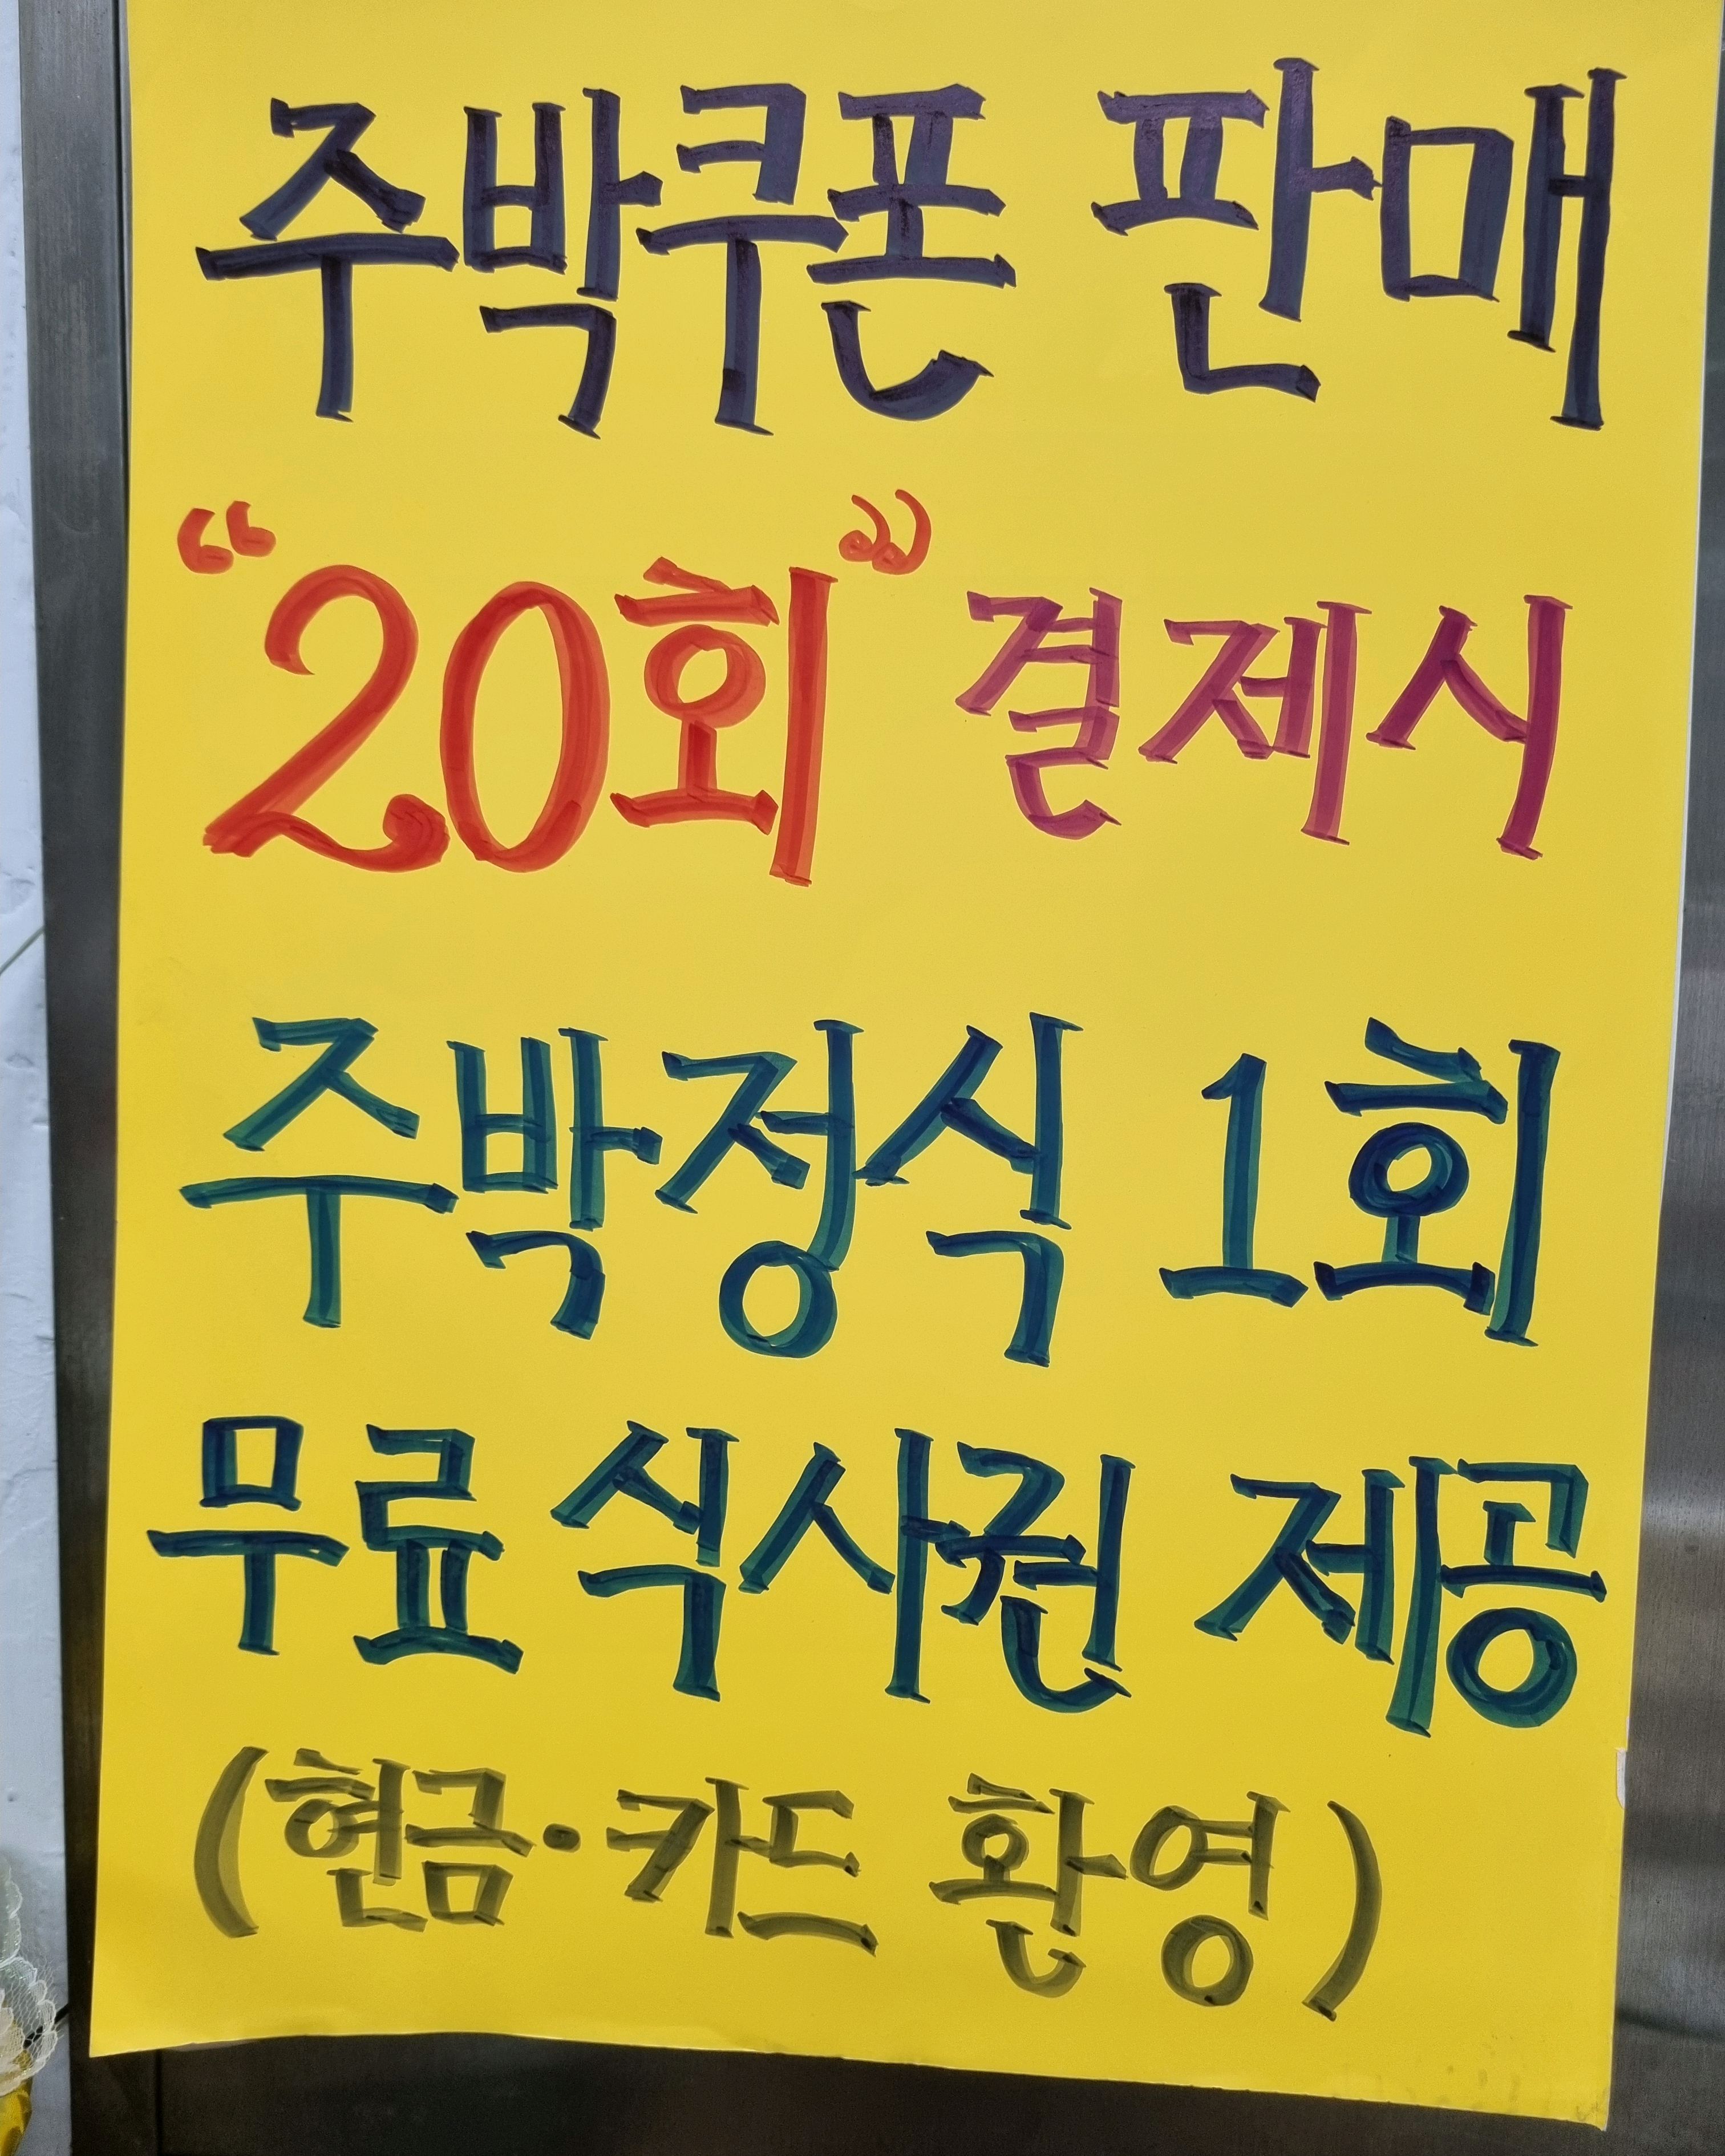 주박쿠폰 판매
"20회" 결제시
주박정식 1회
무료 식사권 제공
(현금·카드 환영)